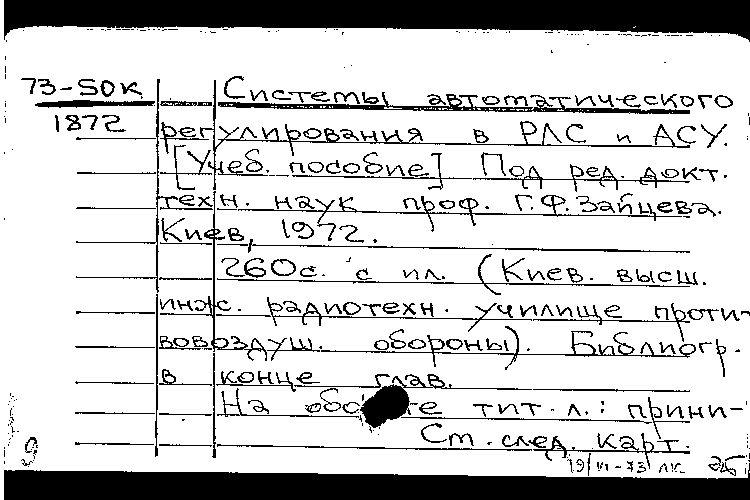 73-50к Системы автоматического
1872 регулирования в РЛС и АСУ.
[Учеб. пособие] Под ред. докт.
техн. наук проф. Г.Ф. Зайцева.
Киев, 1972.
260с. с ил. (Киев. высш.
инж. радиотехн. училище проти-
вовоздуш. обороны). Библиогр.
в конце глав.
На обороте тит. л.: прини-
См. след. карт.
19/VI-73 лк.